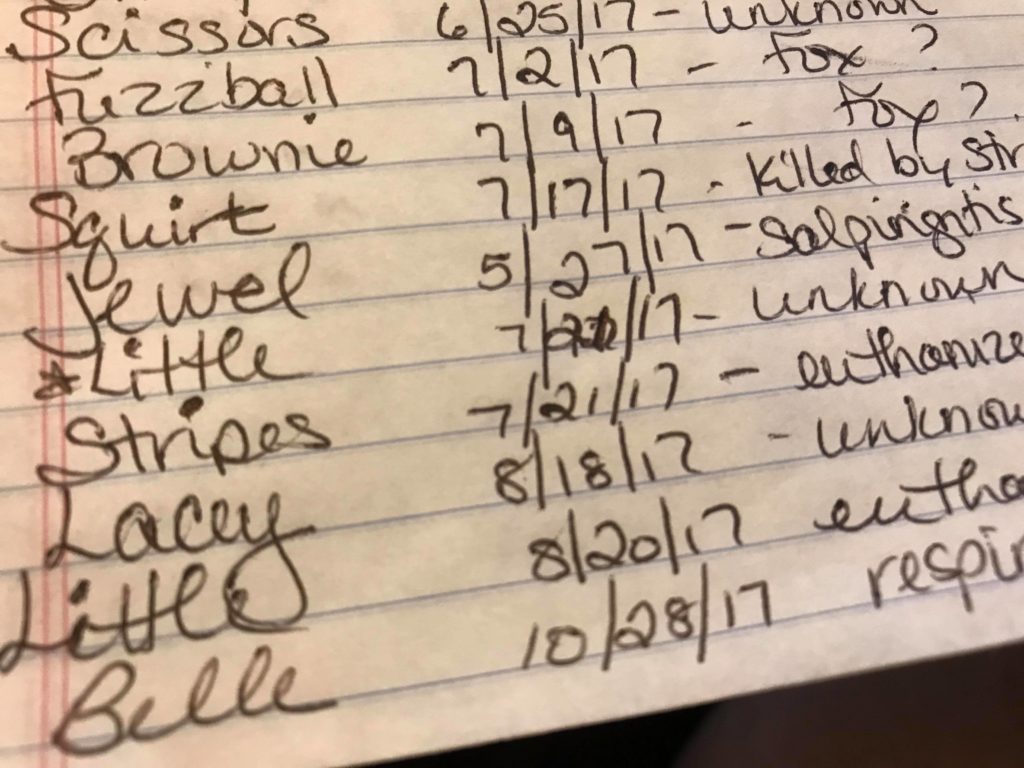 Scissors 6/25/17 - unknown
Fuzzball 7/2/17 - Fox ?
Brownie 7/9/17 - Fox ?
Squirt 7/17/17 - Killed by Str
Jewel 5/27/17 - Salpingitis
*Little /17 - unknown
Stripes 7/21/17 - euthanize
Lacey 8/18/17 - unknow
Little 8/20/17 eutha
Belle 10/28/17 respir